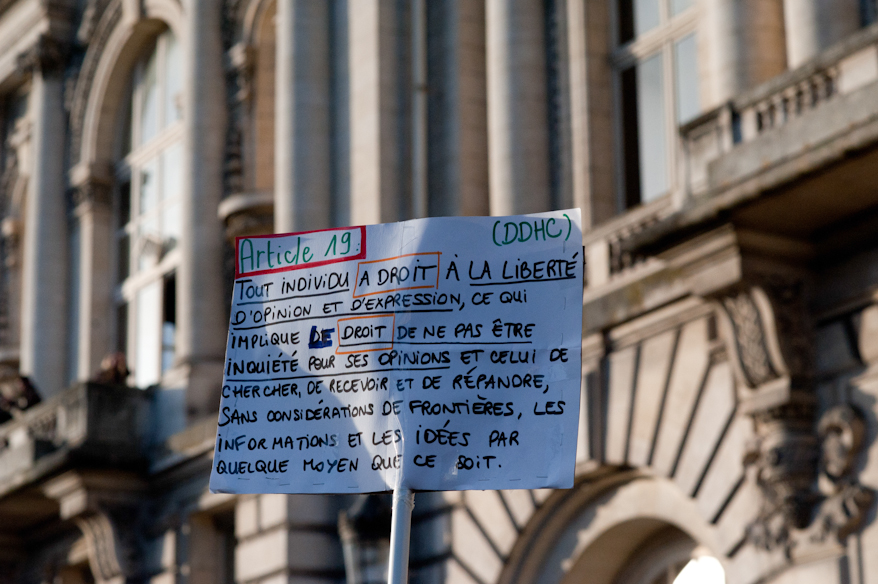 Article 19: (DDHC)
TOUT INDIVIDU A DROIT À LA LIBERTÉ
D'OPINION ET D'EXPRESSION, CE QUI
IMPLIQUE LE DROIT DE NE PAS ÊTRE
INQUIÉTÉ POUR SES OPINIONS ET CELUI DE
CHERCHER, DE RECEVOIR ET DE RÉPANDRE,
SANS CONSIDÉRATIONS DE FRONTIÈRES, LES
INFORMATIONS ET LES IDÉES PAR
QUELQUE MOYEN QUE CE SOIT.